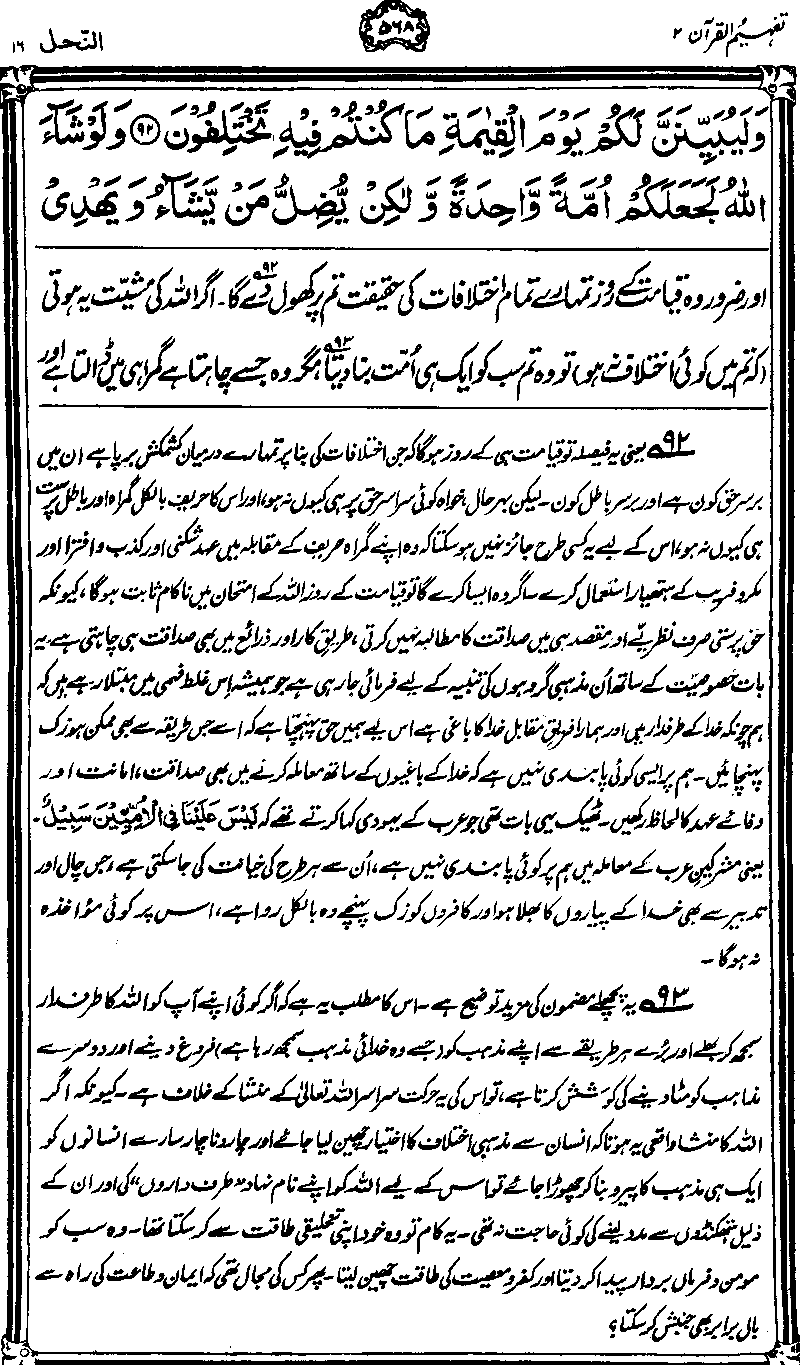 تفہیم القرآن ۲
۵۶۸
النّحل ۱۶
وَلَيُبَيِّنَنَّ لَكُمْ يَوْمَ الْقِيٰمَةِ مَا كُنْتُمْ فِيْهِ تَخْتَلِفُوْنَ ۝۹۲ وَلَوْ شَآءَ
اللّٰهُ لَجَعَلَكُمْ اُمَّةً وَّاحِدَةً وَّلٰكِنْ يُّضِلُّ مَنْ يَّشَآءُ وَيَهْدِيْ
اور ضرور وہ قیامت کے روز تمہارے تمام اختلافات کی حقیقت تم پر کھول دے گا۔۹۲ اگر اللہ کی مشیّت یہ ہوتی
(کہ تم میں کوئی اختلاف نہ ہو) تو وہ تم سب کو ایک ہی اُمّت بنا دیتا۹۳، مگر وہ جسے چاہتا ہے گمراہی میں ڈالتا ہے اور
۹۲ یعنی یہ فیصلہ تو قیامت ہی کے روز ہوگا کہ جن اختلافات کی بنا پر تمہارے درمیان کشمکش برپا ہے ان میں
برسرِ حق کون ہے اور برسرِ باطل کون۔ لیکن بہرحال، خواہ کوئی سراسر حق پر ہی کیوں نہ ہو، اور اس کا حریف بالکل گمراہ اور باطل پرست
ہی کیوں نہ ہو، اس کے لیے یہ کسی طرح جائز نہیں ہو سکتا کہ وہ اپنے گمراہ حریف کے مقابلہ میں عہد شکنی اور کذب و افترا اور
مکر و فریب کے ہتھیار استعمال کرے۔ اگر وہ ایسا کرے گا تو قیامت کے روز اللہ کے امتحان میں ناکام ثابت ہوگا، کیونکہ
حق پرستی صرف نظریّے اور مقصد ہی میں صداقت کا مطالبہ نہیں کرتی، طریقِ کار اور ذرائع میں بھی صداقت ہی چاہتی ہے۔ یہ
بات خصوصیّت کے ساتھ اُن مذہبی گروہوں کی تنبیہ کے لیے فرمائی جا رہی ہے جو ہمیشہ اِس غلط فہمی میں مبتلا رہے ہیں کہ
ہم چونکہ خدا کے طرفدار ہیں اور ہمارا فریقِ مقابل خدا کا باغی ہے اس لیے ہمیں حق پہنچتا ہے کہ اسے جس طریقہ سے بھی ممکن ہو زک
پہنچائیں۔ ہم پر ایسی کوئی پابندی نہیں ہے کہ خدا کے باغیوں کے ساتھ معاملہ کرنے میں بھی صداقت، امانت اور
وفائے عہد کا لحاظ رکھیں۔ ٹھیک یہی بات تھی جو عرب کے یہودی کہا کرتے تھے کہ لَيْسَ عَلَيْنَا فِي الْاُمِّيّٖنَ سَبِيْلٌ۔
یعنی مشرکینِ عرب کے معاملہ میں ہم پر کوئی پابندی نہیں ہے، اُن سے ہر طرح کی خیانت کی جا سکتی ہے، جس چال اور
تدبیر سے بھی خدا کے پیاروں کا بھلا ہو اور کافروں کو زک پہنچے وہ بالکل روا ہے، اس پر کوئی مؤاخذہ
نہ ہوگا۔
۹۳ یہ پچھلے مضمون کی مزید توضیح ہے۔ اس کا مطلب یہ ہے کہ اگر کوئی اپنے آپ کو اللہ کا طرفدار
سمجھ کر بھلے اور بُرے ہر طریقے سے اپنے مذہب کو (جسے وہ خدائی مذہب سمجھ رہا ہے) فروغ دینے اور دوسرے
مذاہب کو مٹا دینے کی کوشش کرتا ہے، تو اس کی یہ حرکت سراسر اللہ تعالیٰ کے منشا کے خلاف ہے۔ کیونکہ اگر
اللہ کا منشا واقعی یہ ہوتا کہ انسان سے مذہبی اختلاف کا اختیار چھین لیا جائے اور چار و ناچار سارے انسانوں کو
ایک ہی مذہب کا پیرو بنا کر چھوڑا جائے تو اس کے لیے اللہ کو اپنے نام نہاد ”طرف داروں“ کی اور ان کے
ذلیل ہتھکنڈوں سے مدد لینے کی کوئی حاجت نہ تھی۔ یہ کام تو وہ خود اپنی تخلیقی طاقت سے کر سکتا تھا۔ وہ سب کو
مومن و فرماں بردار پیدا کر دیتا اور کفر و معصیت کی طاقت چھین لیتا۔ پھر کس کی مجال تھی کہ ایمان و طاعت کی راہ سے
بال برابر بھی جنبش کر سکتا؟